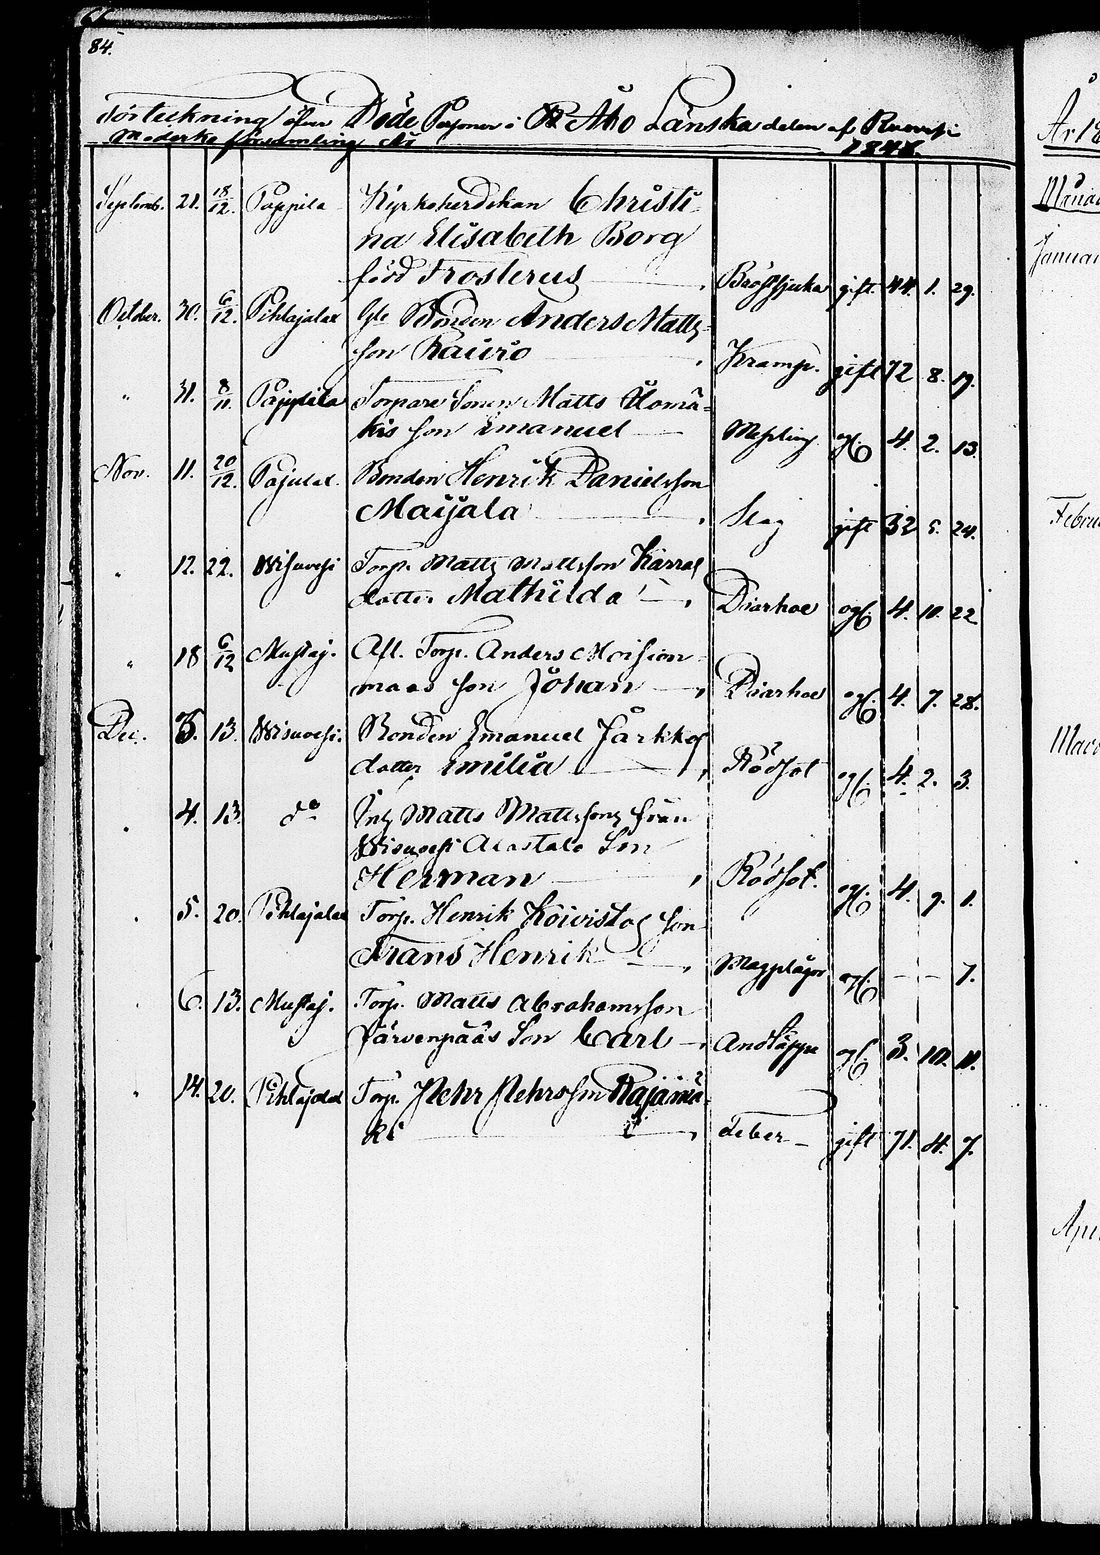 84.
Förteckning öfver Döde Personer i Åbo Länska delen af Ruovesi
Moderko församling År 1848.
Septemb. 21. 18/12. Pappila Kyrkoherdskan Christi-
na Elisabeth Borg
född Frosterus Bröstsjuka gift 44. 1. 29.
October. 30. 6/12. Pihlajalax Gle Bonden Anders Matts-
son Kauro Kramp. gift 72 8. 19.
" 31. 8/11. Pappila Torpare Sonen Matts Alomä-
kis son Emanuel Messling og. 4. 2. 13.
Nov. 11. 20/12. Pajulax. Bonden Henrik Danielsson
Maijala Slag gift 32 5. 24.
" 12. 22. Wisuvesi Torp. Matts Mattsson Kärras
dotter Mathilda Diarhoe og. 4. 10. 22
" 18 6/12 Mustaj. Aft. Torp. Anders Moision-
maas son Johan Diarhoe og. 4. 7. 28.
Dec. 3. 13. Wisuvesi. Bonden Emanuel Järkkos
dotter Emilia Rödsot og. 4. 2. 3.
4. 13. do Inh. Matts Mattssons från
Wisuvesi Alastalo Son
Herman Rödsot. og. 4. 9. 1.
5. 20. Pihlajalax Torp. Henrik Koivistos son
Frans Henrik Magplågor og. - - 7.
6. 13. Mustaj. Torp. Matts Abrahamsson
Järvenpääs Son Carl Andtäppa og. 3. 10. 11.
14. 20. Pihlajalax Torp. Mehr Mehrsson Rajamä-
ki Feber gift 71. 4. 7.
År 18
Månad
Januari
Febru
Mars
Apri